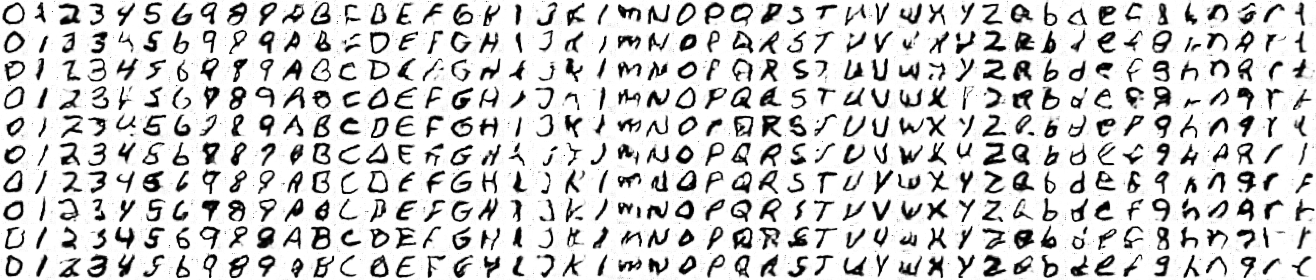 0 1 2 3 4 5 6 9 8 9 A B C D E F G H I J K I m N O P Q R S T U V W X Y Z a b d e f 8 h n G r t
0 1 3 3 4 5 6 9 8 9 A B C D E F G H I J K I m N O P Q R S T U V W X Y Z a b d e f 9 h n q r t
0 1 2 3 4 5 6 8 9 9 A B C D E F G N I J K I m N O P Q R S T U V W X Y Z a b d e f g h n q r t
0 1 2 3 4 5 6 9 8 9 A B C D E F G H I J 1 m N O P Q R S T U V W X Y 2 a b d e e 9 h n q r t
0 1 2 3 4 5 6 9 8 9 A B C D E F G H I J K I m N O r Q R S U U W X Y Z b d e f 9 h n 9 r t
0 1 2 3 4 5 6 8 8 7 A B C D E G N J m N O P Q R S U V W X Y Z a b d e f 9 h A R r t
0 1 2 3 4 5 6 9 8 9 A B C D E F G H I J K I m N O P Q R S T U V W X Y Z a b d e f 9 h n 9 r t
0 1 2 3 4 5 6 9 8 9 A B C D E F G H I J K I m N O P Q R S T U V W X Y Z a b d e f 9 h n q r t
0 1 2 3 4 5 6 9 8 8 A B C D E F G H I J K I m N O P Q R S T U V W X Y Z a b d e f 9 h n 2 r t
0 1 2 3 4 5 6 9 8 9 A B C D E F G H I J K I m N O P Q R S T U V W X Y Z a b d e f 9 h n q r t